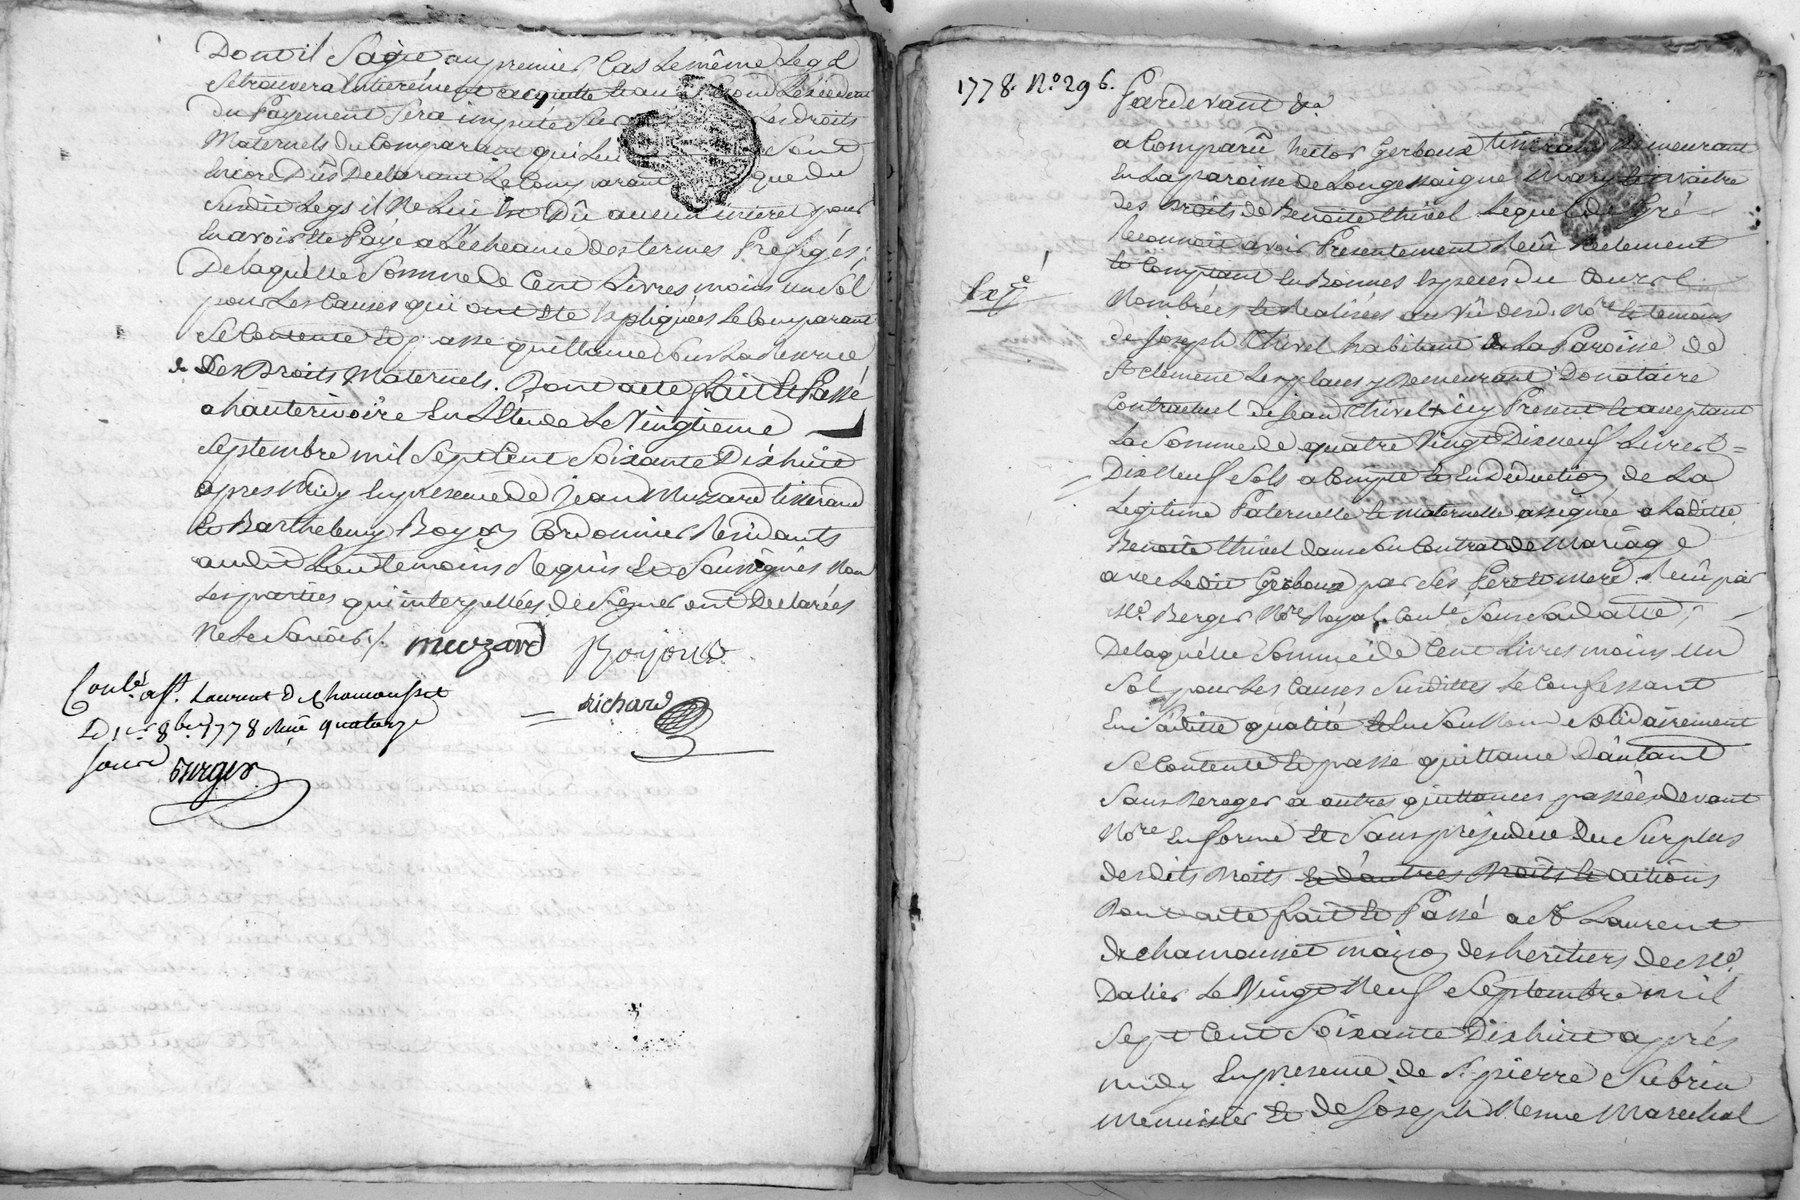 Dont il s'agit au premier Cas le même Legs
se trouvera Entierément acquitté
Du Payement sera imputé Sur Les droits
Maternels du Comparant qui Lui Sont
Encore Dûs Declarant Le Comparant que du
Susdit Legs il Ne Lui Est Dû aucun interet pour
En avoir Eté Payé a L'écheance des termes Prefigés;
De laquelle Somme de Cent Livres moins un Sol
pour Les Causes qui ont Eté Expliquées Le Comparant
Se Contente Et passe quittance sous La Reserve
de Ses Droits Maternels. Dont acte fait Et Passé
a hauterivoire En L'Etude Le Vingtieme
Septembre mil Sept Cent Soixante Dixhuit
apres Midy En presence de Jean Muzard tisserand
Et Barthelemy Boyon Cordonnier Residants
audit Lieu temoins Requis Et Soussignés Non
Les parties qui interpellées de Signer ont Declarées
Ne Le Savoir ./.
muzard Boyon
richard
Conlé. a St. Laurent De Chamousset
Le 1er. 8bre. 1778 Reçu quatorze
sous
Berger
1778. No. 296.
Pardevant &a
a Comparû hector Gerboux tisserand Demeurant
En La paroisse de Longessaigne Mary Et maitre
Des Droits de Benoite thivel Lequel de Gré
Reconnoit avoir Presentement Reçû Réelement
Et Comptant En Bonnes Especes du Cours
Nombrées Et Realisées au Vû desd. Nore. Et temoins
Exé.
de Joseph thivel habitant de La Paroisse de
St clement Les places y Demeurant, Donataire
Contractuel de Jean thivel icy Present Et acceptant
La Somme de quatre Vingt Dix neuf Livres
Dix Neuf Sols a Compte Et En Déduction de La
Legitime Paternelle Et maternelle assignée a Laditte
Benoite thivel dans son Contrat de Mariage
avec Ledit Gerboux par Ses Pere Et Mere Reçû par
Me. Berger Nore. Royal Conlé. Sous sa datte;
De laquelle Somme de Cent Livres moins un
Sol pour Les Causes Susdittes Le Confessant
En Saditte qualité Et En Son Nom Solidairement
Se Contente Et passe quittance D'autant
Sans Deroger a autres quittances passées devant
Nore. En forme Et Sans prejudice du Surplus
desdits Droits Et d'autres Droits Et actions
Dont acte fait Et Passé a St Laurent
de chamousset maison des heritiers de Me.
Dalier Le Vingt Neuf Septembre mil
Sept Cent Soixante Dixhuit après
midy En presence de Sr. pierre Subrin
Menuisier Et de Joseph Marechal